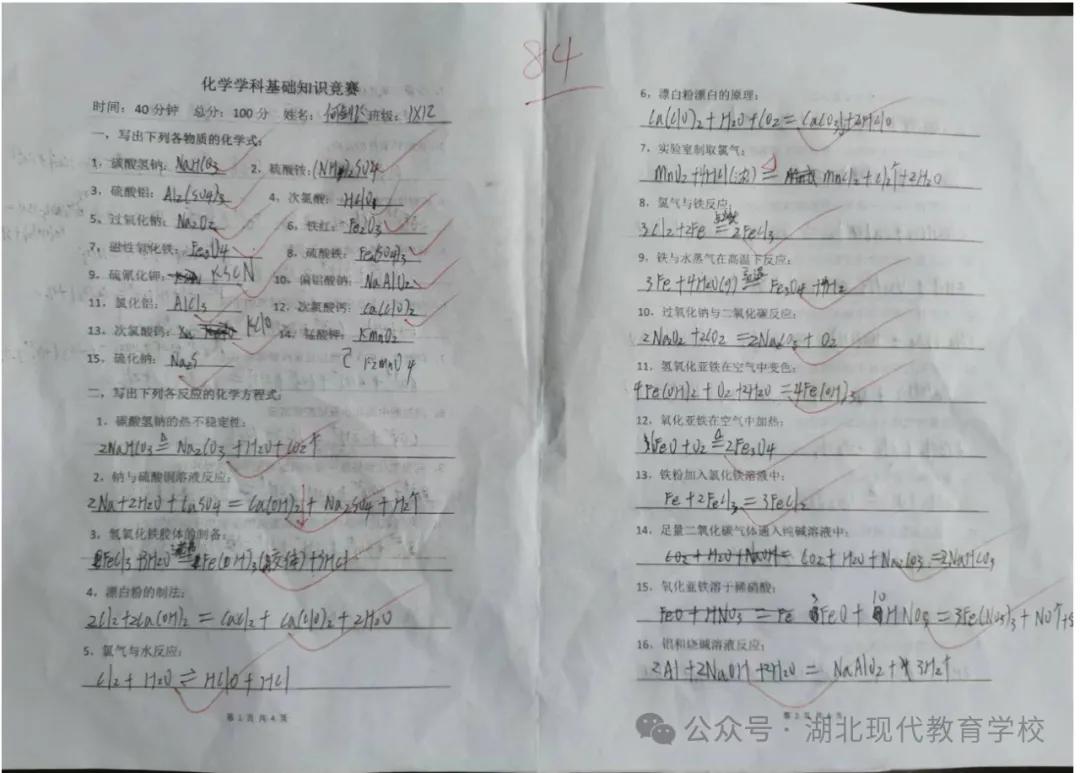 84
化学学科基础知识竞赛
时间：40分钟 总分：100分 姓名： 班级：
一、写出下列各物质的化学式：
1、碳酸氢钠：NaHCO3 2、硫酸铵：(NH4)2SO4
3、硫酸铝：Al2(SO4)3 4、次氯酸：HClO
5、过氧化钠：Na2O2 6、铁红：Fe2O3
7、磁性氧化铁：Fe3O4 8、硫酸铁：Fe2(SO4)3
9、硫氰化钾：KSCN 10、偏铝酸钠：NaAlO2
11、氯化铝：AlCl3 12、次氯酸钙：Ca(ClO)2
13、次氯酸钙：KClO 14、锰酸钾：KMnO4
K2MnO4
15、硫化钠：Na2S
二、写出下列各反应的化学方程式：
1、碳酸氢钠的热不稳定性：
2NaHCO3 ≜ Na2CO3 + H2O + CO2↑
2、钠与硫酸铜溶液反应：
2Na + 2H2O + CaSO4 = Ca(OH)2↓ + Na2SO4 + H2↑
3、氢氧化铁胶体的制备：
FeCl3 + 3H2O = Fe(OH)3(胶体) + 3HCl
4、漂白粉的制法：
2Cl2 + 2Ca(OH)2 = CaCl2 + Ca(ClO)2 + 2H2O
5、氯气与水反应：
Cl2 + H2O ⇌ HClO + HCl
第 1 页 共 4 页
6、漂白粉漂白的原理：
Ca(ClO)2 + H2O + CO2 = CaCO3↓ + 2HClO
7、实验室制取氯气：
MnO2 + 4HCl(浓) ≜ MnCl2 + Cl2↑ + 2H2O
8、氯气与铁反应：
3Cl2 + 2Fe = 2FeCl3
9、铁与水蒸气在高温下反应：
3Fe + 4H2O(g) 高温= Fe3O4 + 4H2
10、过氧化钠与二氧化碳反应：
2Na2O2 + 2CO2 = 2Na2CO3 + O2
11、氢氧化亚铁在空气中变色：
4Fe(OH)2 + O2 + 2H2O = 4Fe(OH)3
12、氧化亚铁在空气中加热：
6FeO + O2 ≜ 2Fe3O4
13、铁粉加入氯化铁溶液中：
Fe + 2FeCl3 = 3FeCl2
14、足量二氧化碳气体通入纯碱溶液中：
CO2 + H2O + NaOH = CO2 + H2O + Na2CO3 = 2NaHCO3
15、氧化亚铁溶于稀硝酸：
FeO + HNO3 = Fe 3FeO + 10HNO3 = 3Fe(NO3)3 + NO↑ + 5
16、铝和烧碱溶液反应：
2Al + 2NaOH + 2H2O = NaAlO2 + 3H2↑
第 2 页 共 4 页
公众号·湖北现代教育学校